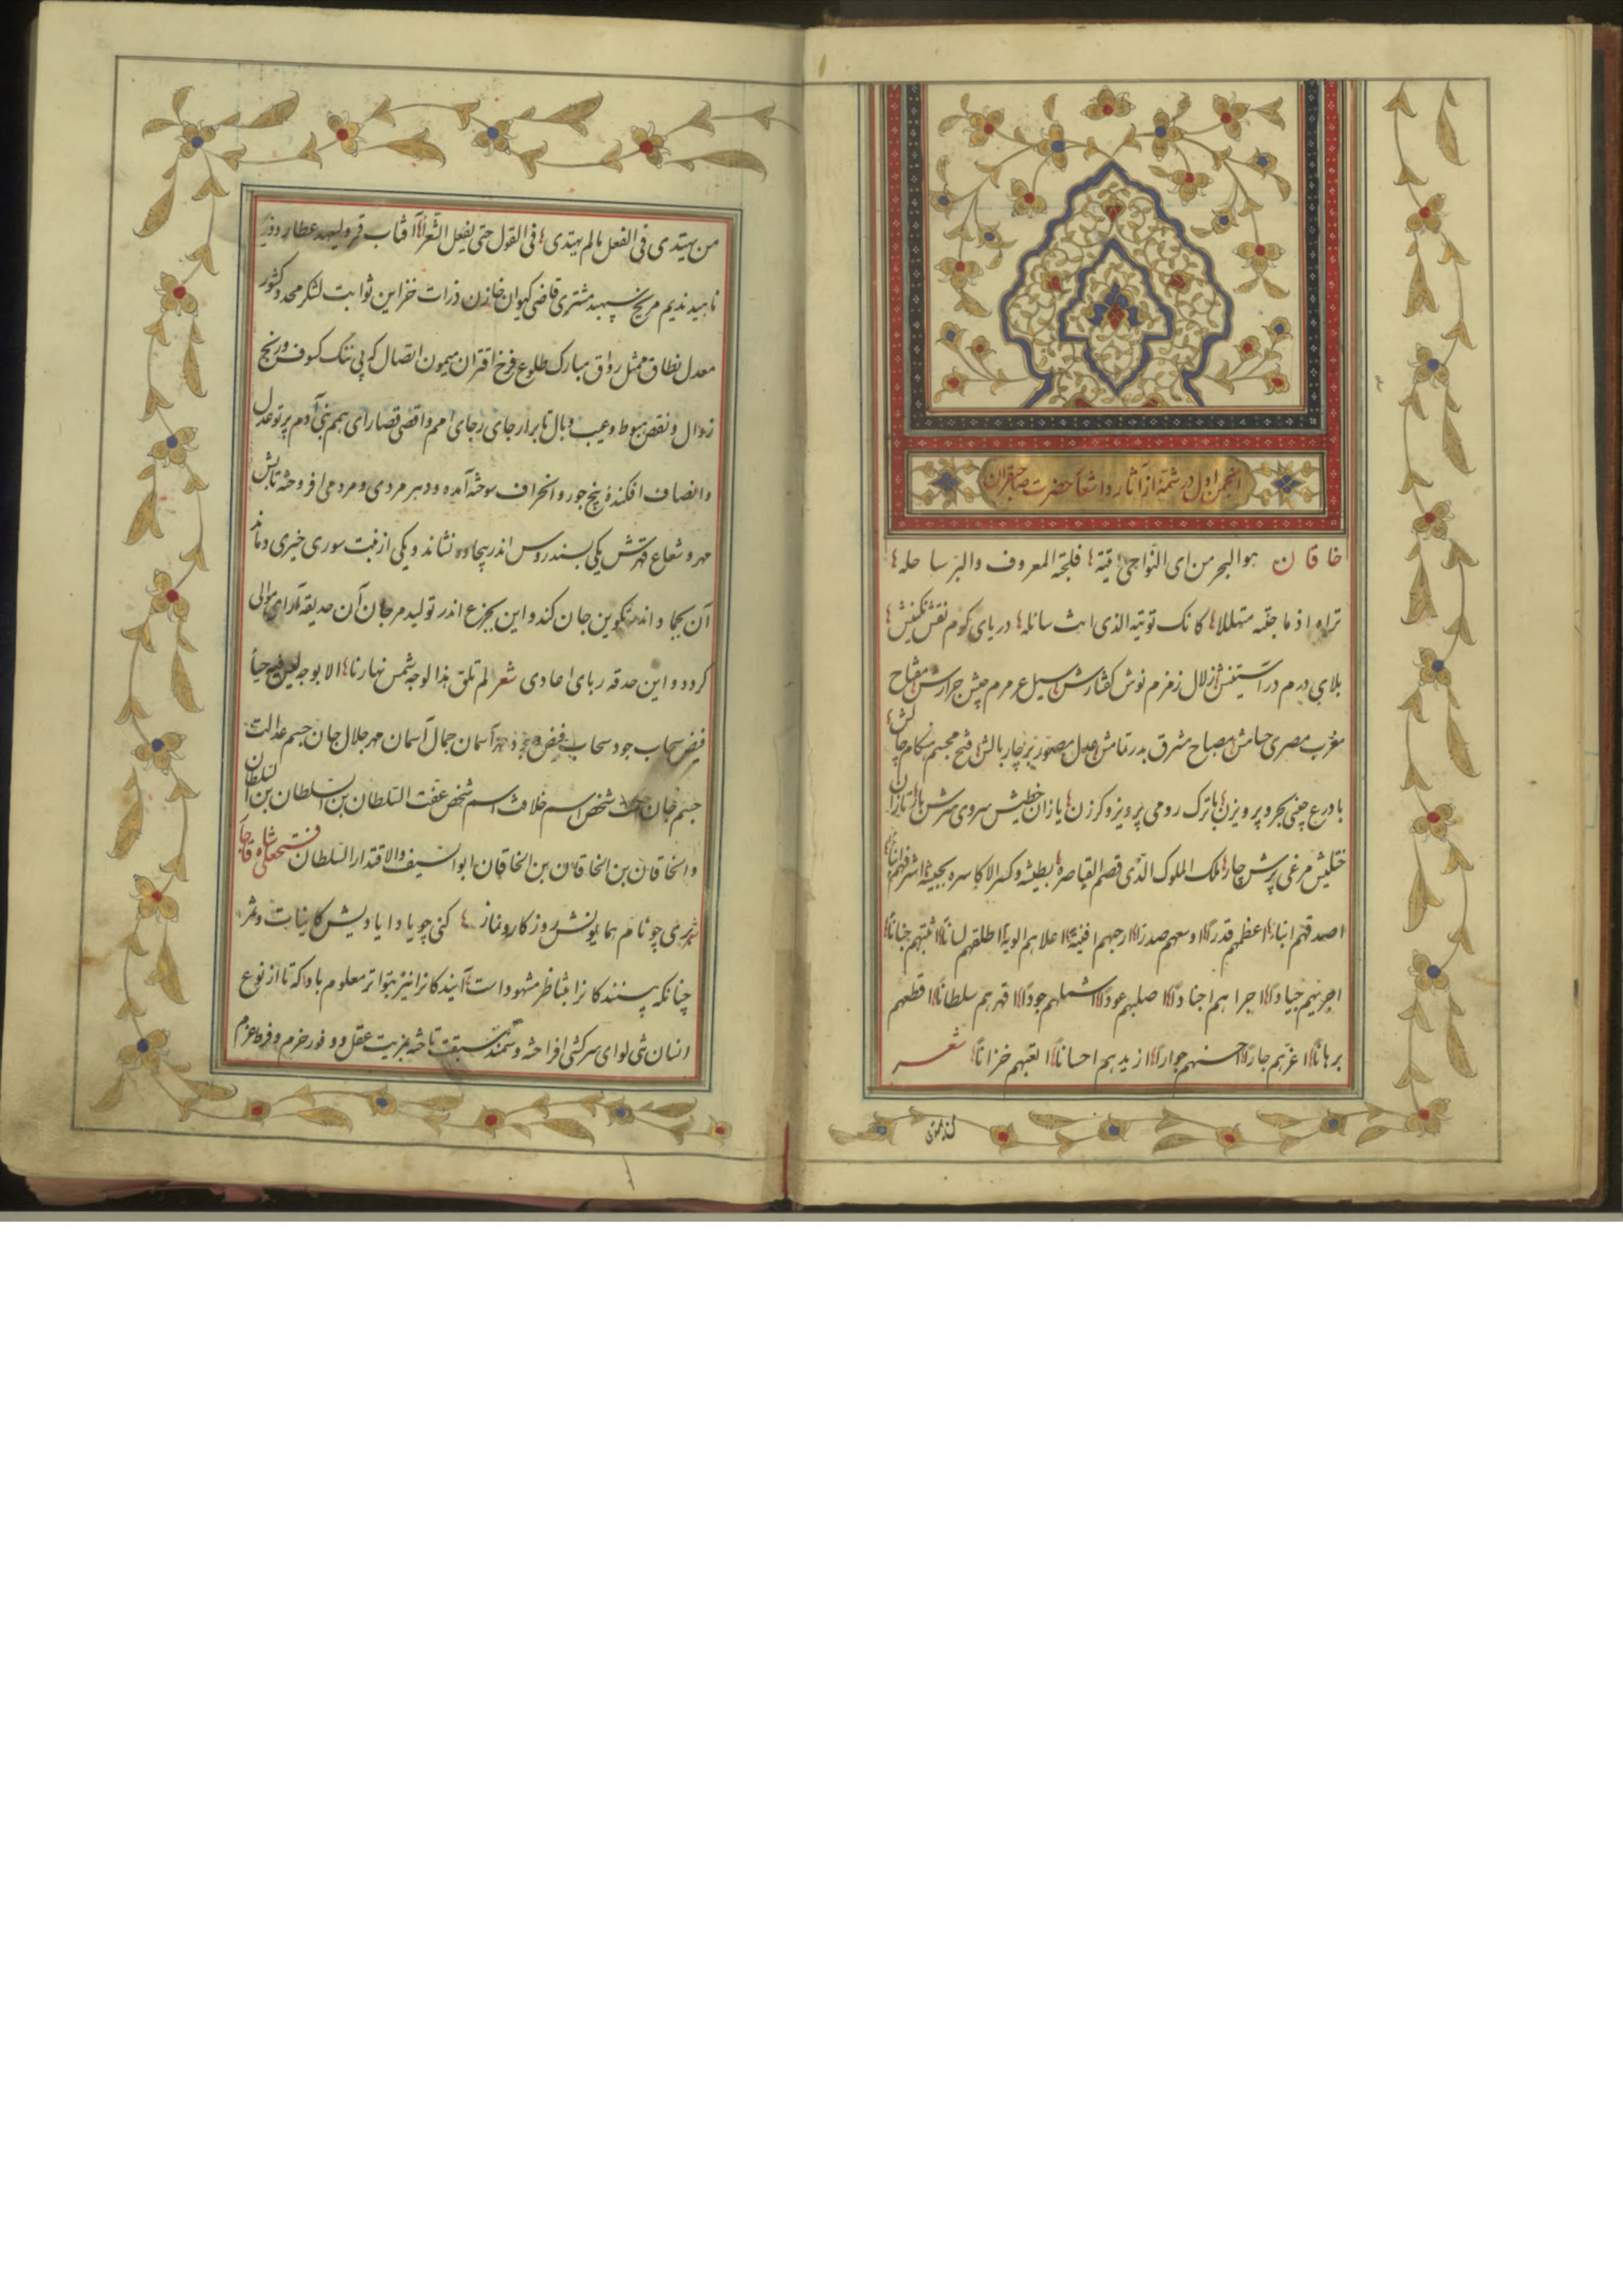 انجمن اول در شمهٔ از آثار و اشعار حضرت صاحبقران
خاقان هو البحر من ای النواحی اتیته فلجته المعروف والبر ساحله
تراه اذا ما جئته متهللا کانک تؤتیه الذی انت سائله دریای کرم نقش نگینش
بلای درم در آستینش زلال زمزم نوش گفتارش سیل عرمرم جیش جرارش مفتاح
مغرب مصری حسامش مصباح مشرق بدر تمامش عدل مصور زیر چار بالش فتح مجسم هنگام چالش
با درع چینی بحر و پرویزن با ترک رومی پرویز و کرزن یازان خطیش سروی سرش بار تازان
ختلیش مرغی پرش چار ملک الملوک الذی قصم القیاصره بطیشه و کسر الاکاسره بجیشه اشرفهم
اصدقهم انباء اعظمهم قدرا اوسعهم صدرا ارحبهم افنیة اعلاهم الویة اطلقهم لسانا اثبتهم جنانا
اجریهم جیادا اجراهم اجنادا اصلبهم عودا اشملهم جودا اقهرهم سلطانا اقطعهم
برهانا اعزهم جارا احسنهم جوارا ازیدهم احسانا اتعبهم خزانا شعر
من یهتدی فی الفعل ما لم یهتدی فی القول حتی یفعل الشعرا آفتاب قمر ولیعهد عطارد وزیر
ناهید ندیم مریخ سپهبد مشتری قاضی کیوان خازن ذرات خزاین ثوابت لشکر محدد کشور
معدل نطاق ممثل رواق مبارک طلوع فرخ اقتران میمون اتصال که بی ننگ کسوف و رنج
زوال و نقص هبوط و عیب وبال تا بر ارجای رجای امم و اقصی قصارای همم بنی آدم پرتو عدل
و انصاف افکنده بیخ جور و انحراف سوخته آمده و دهر مردی و مردمی افروخته تابش
مهر و شعاع قهرش یکی بسندروس اندر بیجاده نشاند و یکی از نبت سوری خیری دماند
آن بجماد اندر تکوین جان کند و این بجزع اندر تولید مرجان آن حدیقه آرای موالی
گردد و این حدقه ربای اعادی شعر لم تلق هذا الوجه شمس نهارنا الا بوجه لیس فیه حیاء
فیض سحاب جود سحاب فیض وجود مهر آسمان جمال آسمان مهر جلال جان جسم عدالت
جسم جان شخص اسم خلافت اسم شخص عفت السلطان بن السلطان بن السلطان
والخاقان بن الخاقان بن الخاقان ابو السیف والاقتدار السلطان فتحعلی شاه قاجار
ثری چو نام همایونش روزکار و نماز کنی چو یاد ایادیش کاینات و ثمر
چنانکه بینندکانرا بتناظر مشهود است آیندکانرا نیز بتواتر معلوم باد که تا از نوع
انسان تنی لوای سرکشی افراخته و سمند سبقت تاخته بمزیت عقل و وفور حزم و فرط عزم